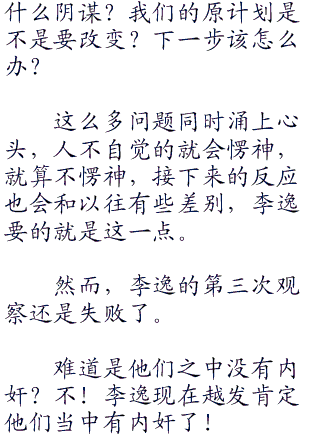 什么阴谋？我们的原计划是
不是要改变？下一步该怎么
办？
这么多问题同时涌上心
头，人不自觉的就会愣神，
就算不愣神，接下来的反应
也会和以往有些差别，李逸
要的就是这一点。
然而，李逸的第三次观
察还是失败了。
难道是他们之中没有内
奸？不！李逸现在越发肯定
他们当中有内奸了！